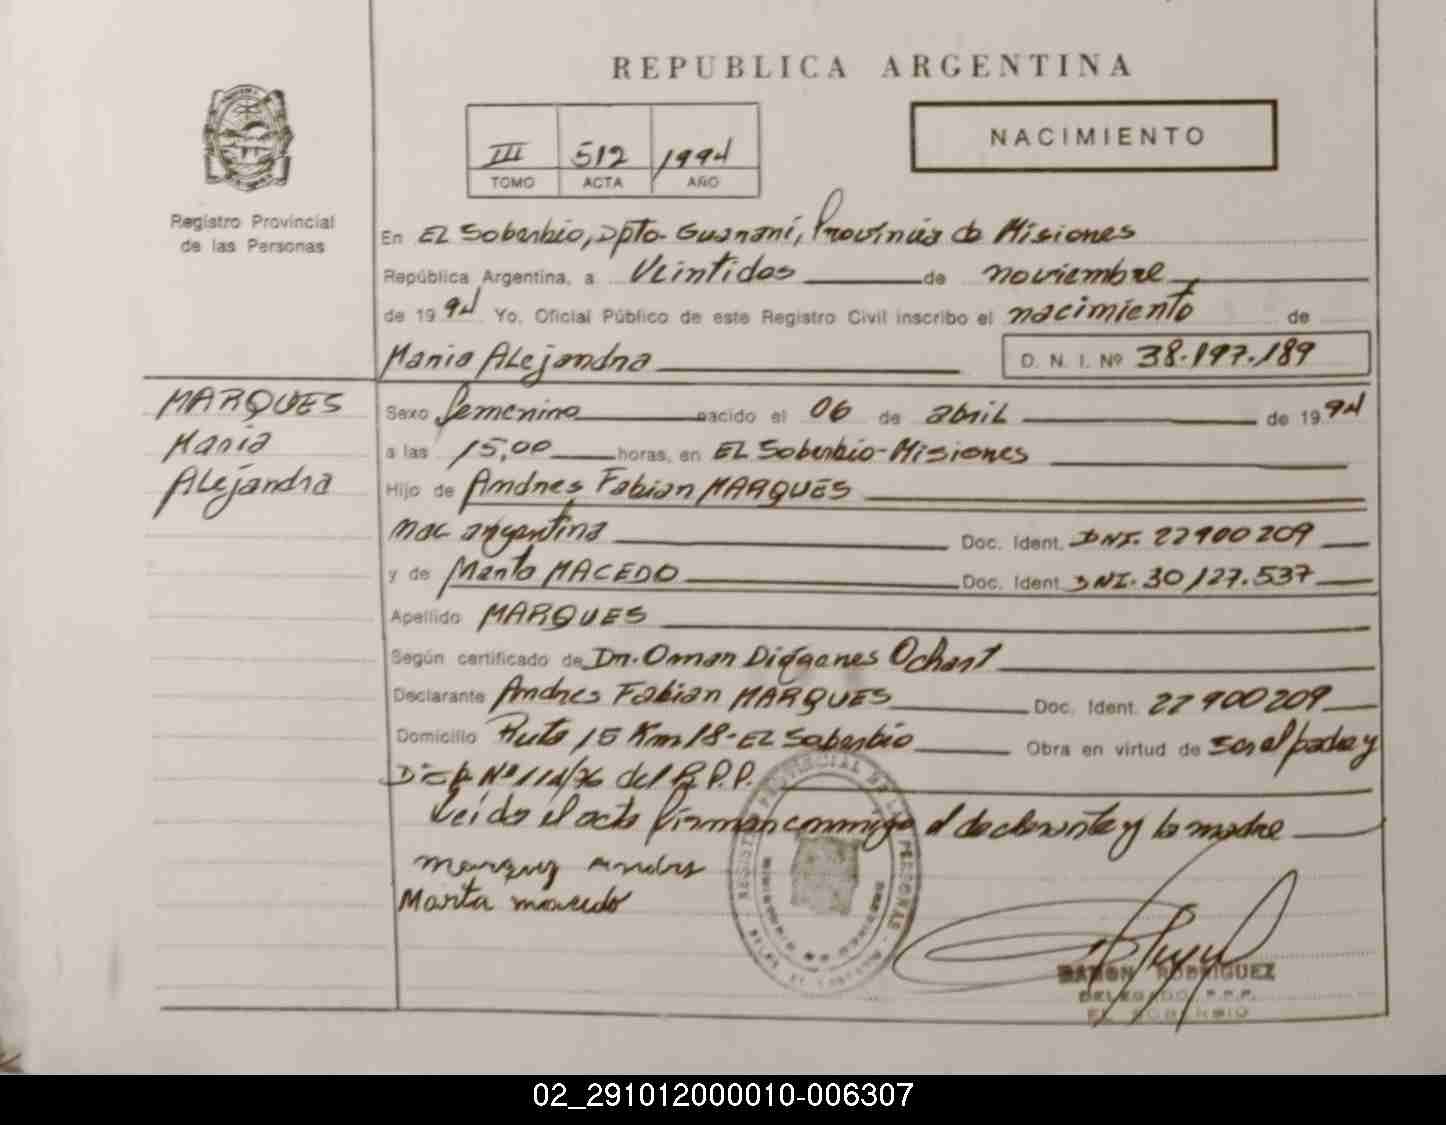 REPUBLICA ARGENTINA
III 512 1994
TOMO ACTA AÑO
NACIMIENTO
Registro Provincial
de las Personas
En EL Soberbio, Dpto. Guaraní, Provincia de Misiones
República Argentina, a Veintidos de noviembre
de 1994 Yo, Oficial Público de este Registro Civil inscribo el nacimiento de
Maria Alejandra D. N. I. Nº 38.197.189
MARQUES
Maria
Alejandra
Sexo femenino nacido el 06 de abril de 1994
a las 15,00 horas, en EL Soberbio-Misiones
Hijo de Andres Fabian MARQUES
nac. argentina Doc. Ident. DNI. 22900209
y de Marta MACEDO Doc. Ident. DNI. 30127.537
Apellido MARQUES
Según certificado de Dr. Omar Diógenes
Declarante Andres Fabian MARQUES Doc. Ident. 22900209
Domicilio Ruta 15 Km 18-EL Soberbio Obra en virtud de ser el padre y
del R.P.P.
Leído el acta firman conmigo el declarante y la madre
Andres
Marta macedo
RAMON RODRIGUEZ
DELEGADO R.P.P.
EL SOBERBIO
02_291012000010-006307